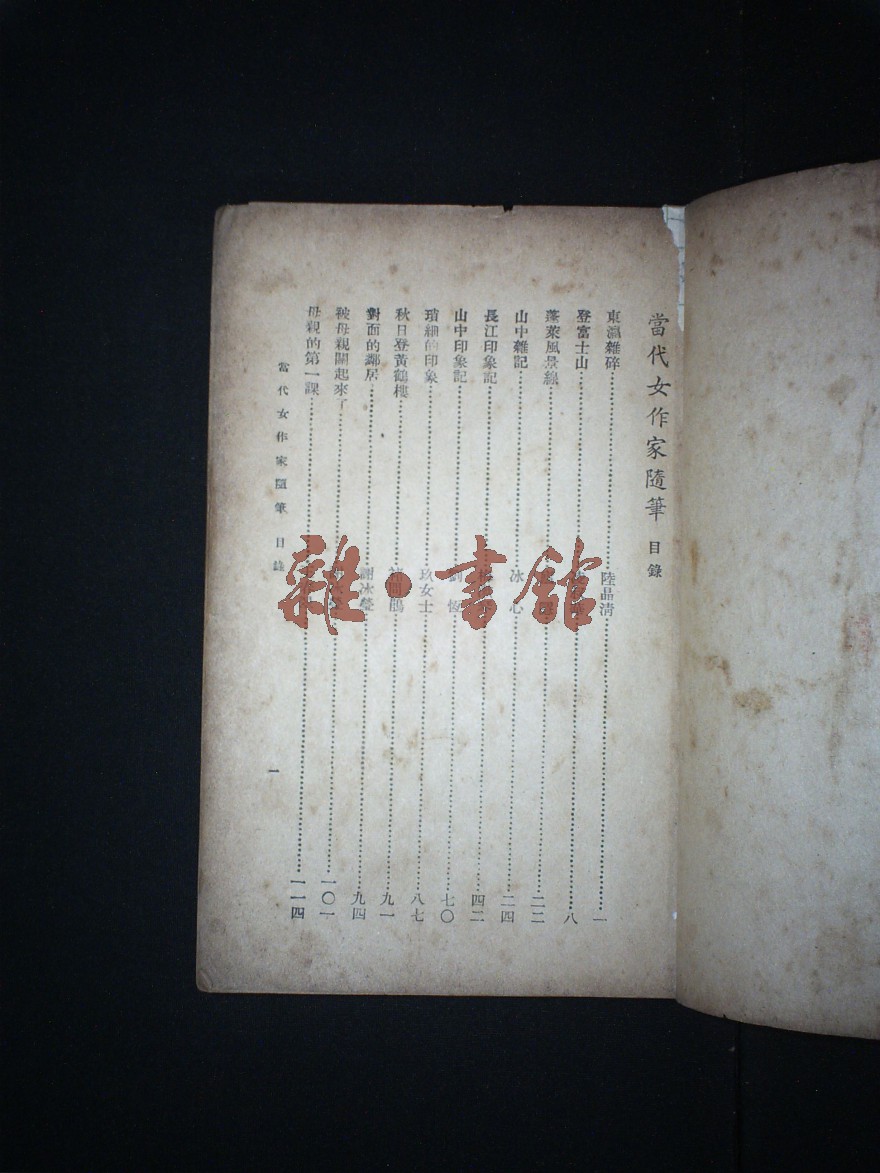 當代女作家隨筆 目錄
東瀛雜碎 陸晶清 一
登富士山 八
蓬萊風景線 二二
山中雜記 冰心 二四
長江印象記 四二
山中印象記 劉恆 七〇
瑣細的印象 玖女士 八七
秋日登黃鶴樓 九一
對面的鄰居 謝冰瑩 九四
被母親關起來了 一〇一
母親的第一課 一一四
當代女作家隨筆 目錄
一
雜·書館